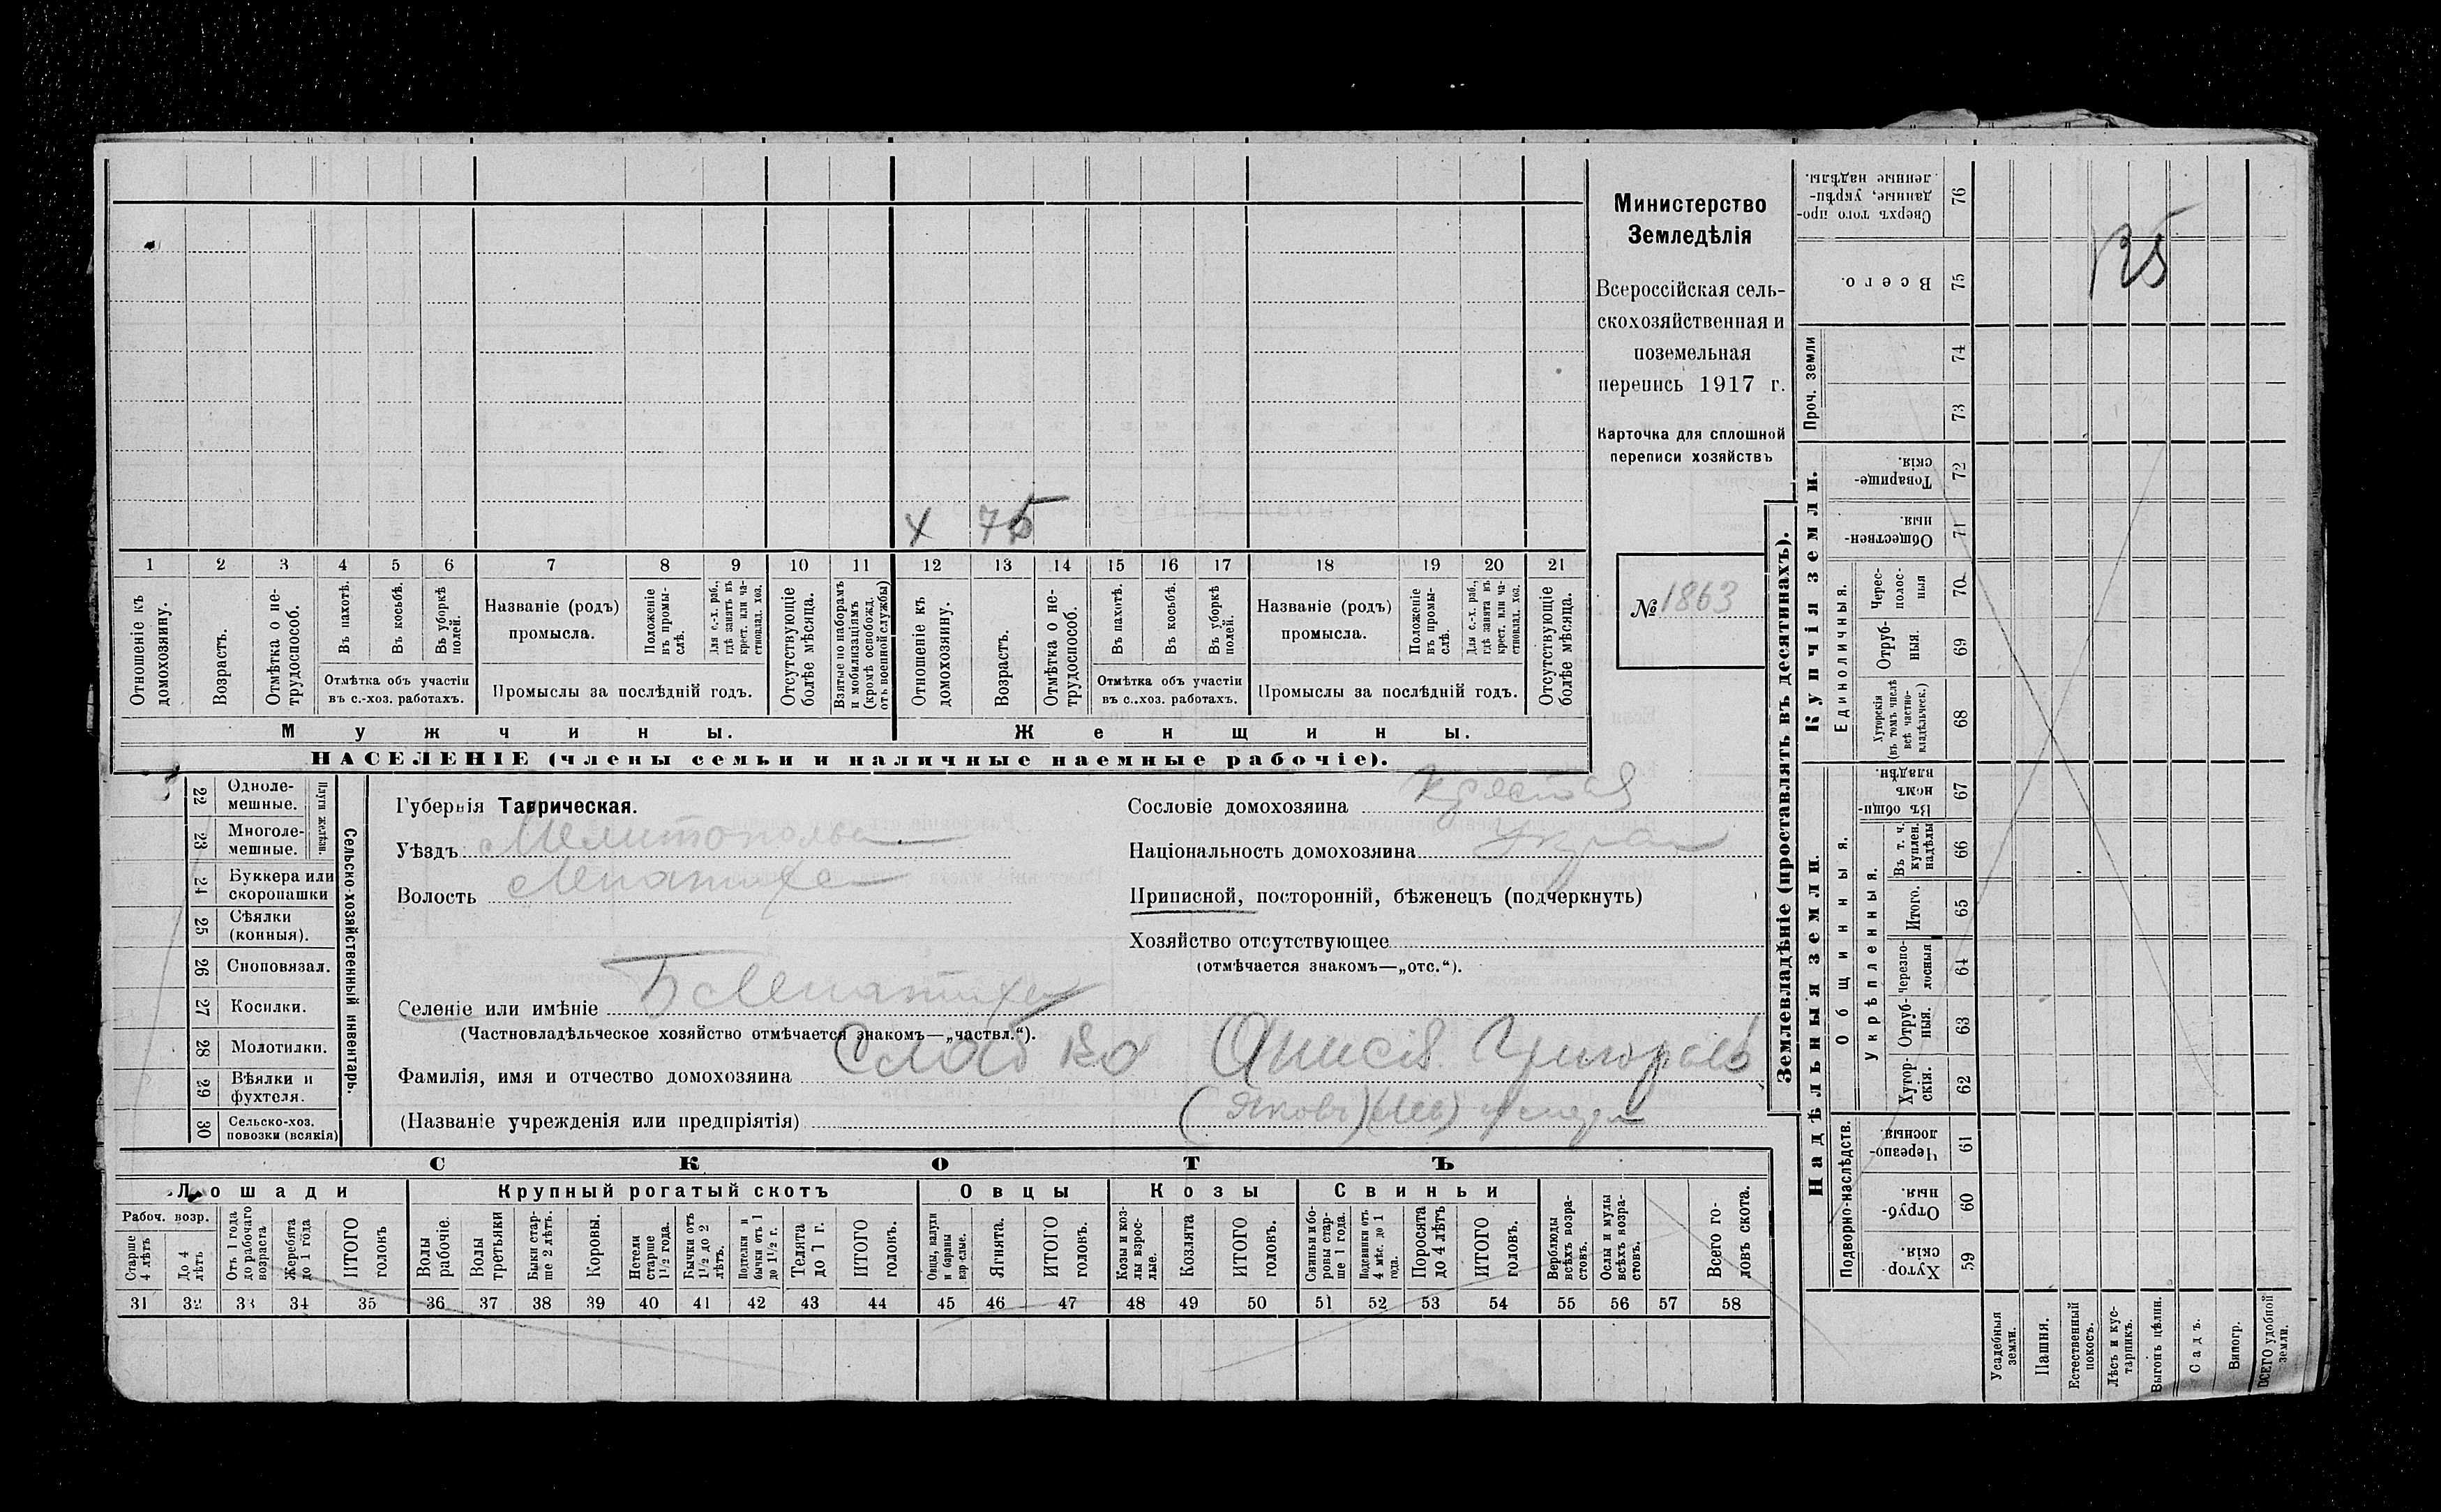 Министерство
Земледѣлія
Всероссійская сель-
скохозяйственная и
поземельная
перепись 1917 г.
Карточка для сплошной
переписи хозяйствъ
№ 1863
135
х 75
1 2 3 4 5 6 7 8 9 10 11 12 13 14 15 16 17 18 19 20 21
Отношеніе къ домохозяину.
Возрастъ.
Отмѣтка о не-трудоспособ.
Въ пахотѣ.
Въ косьбѣ.
Въ уборкѣ полей.
Отмѣтка объ участіи
въ с.-хоз. работахъ.
Названіе (родъ)
промысла.
Положеніе въ промы-слѣ.
Для с.-х. раб., гдѣ занятъ въ крест. или ча-стновлад. хоз.
Промыслы за послѣдній годъ.
Отсутствующіе болѣе мѣсяца.
Взятые по наборамъ и мобилизаціямъ (кромѣ освобожд. отъ военной службы)
Отношеніе къ домохозяину.
Возрастъ.
Отмѣтка о не-трудоспособ.
Въ пахотѣ.
Въ косьбѣ.
Въ уборкѣ полей.
Отмѣтка объ участіи
въ с.-хоз. работахъ.
Названіе (родъ)
промысла.
Положеніе въ промы-слѣ.
Для с.-х. раб., гдѣ занята въ крест. или ча-стновлад. хоз.
Промыслы за послѣдній годъ.
Отсутствующіе болѣе мѣсяца.
Мужчины.
Женщины.
НАСЕЛЕНІЕ (члены семьи и наличные наемные рабочіе).
22 Одноле-мешные.
23 Многоле-мешные.
Плуги желѣзн.
24 Буккера или скоропашки
25 Сѣялки (конныя).
26 Сноповязал.
27 Косилки.
28 Молотилки.
29 Вѣялки и фухтеля.
30 Сельско-хоз. повозки (всякія)
Сельско-хозяйственный инвентарь.
Губернія Таврическая.
Уѣздъ Мелитополь
Волость
Селеніе или имѣніе Б
(Частновладѣльческое хозяйство отмѣчается знакомъ—„частвл.“).
Фамилія, имя и отчество домохозяина Слабко Анисія Григорьев
(Названіе учрежденія или предпріятія) (Яковъ)
Сословіе домохозяина крестья
Національность домохозяина Украин
Приписной, посторонній, бѣженецъ (подчеркнуть)
Хозяйство отсутствующее
(отмѣчается знакомъ—„отс.“).
СКОТЪ
Лошади
Крупный рогатый скотъ
Овцы
Козы
Свиньи
Рабоч. возр.
Старше 4 лѣтъ
До 4 лѣтъ
Отъ 1 года до рабочаго возраста
Жеребята до 1 года
ИТОГО головъ
Волы рабочіе.
Волы третьяки
Быки стар-ше 2 лѣтъ.
Коровы.
Нетели старше 1½ года.
Бычки отъ 1½ до 2 лѣтъ.
Подтелки и бычки отъ 1 до 1½ г.
Телята до 1 г.
ИТОГО головъ.
Овцы, валухи и бараны взрослые.
Ягнята.
ИТОГО головъ.
Козы и коз-лы взрос-лые.
Козлята
ИТОГО головъ.
Свиньи и бо-ровы стар-ше 1 года.
Подсвинки отъ 4 мѣс. до 1 года.
Поросята до 4 лѣтъ
ИТОГО головъ.
Верблюды всѣхъ возра-стовъ.
Ослы и мулы всѣхъ возра-стовъ.
Всего го-ловъ скота.
31 32 33 34 35 36 37 38 39 40 41 42 43 44 45 46 47 48 49 50 51 52 53 54 55 56 57 58
Землевладѣніе (проставлять въ десятинахъ).
Сверхъ того про-данные, укрѣп-ленные надѣлы. 76
Всего. 75
Проч. земли
74
73
Купчія земли.
Товарище-скія. 72
Обществен-ныя. 71
Единоличныя.
Черес-полос-ныя 70
Отруб-ныя. 69
Хуторскія (въ томъ числѣ всѣ частно-владѣльческ.) 68
Надѣльныя земли.
Въ общи-номъ владѣн. 67
Общинныя.
Въ т. ч. куплен. надѣлы 66
Укрѣпленныя.
Итого. 65
Черезпо-лосныя 64
Отруб-ныя. 63
Хутор-скія. 62
Подворно-наслѣдств.
Черезпо-лосныя. 61
Отруб-ныя. 60
Хутор-скія. 59
Усадебныя земли.
Пашня.
Естественный покосъ.
Лѣсъ и кус-тарникъ.
Выгонъ цѣлин.
Садъ.
Виногр.
ВСЕГО удобной земли.